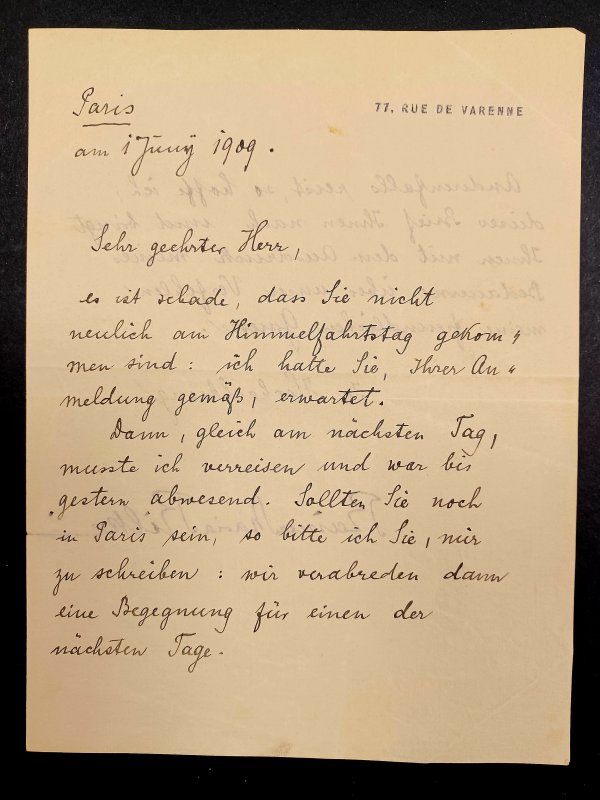 Paris
77, RUE DE VARENNE
am 1 Juny 1909.
Sehr geehrter Herr,
es ist schade, dass Sie nicht
neulich am Himmelfahrtstag gekom„
men sind: ich hatte Sie, Ihrer An„
meldung gemäß, erwartet.
Dann, gleich am nächsten Tag,
musste ich verreisen und war bis
gestern abwesend. Sollten Sie noch
in Paris sein, so bitte ich Sie, mir
zu schreiben: wir verabreden dann
eine Begegnung für einen der
nächsten Tage.